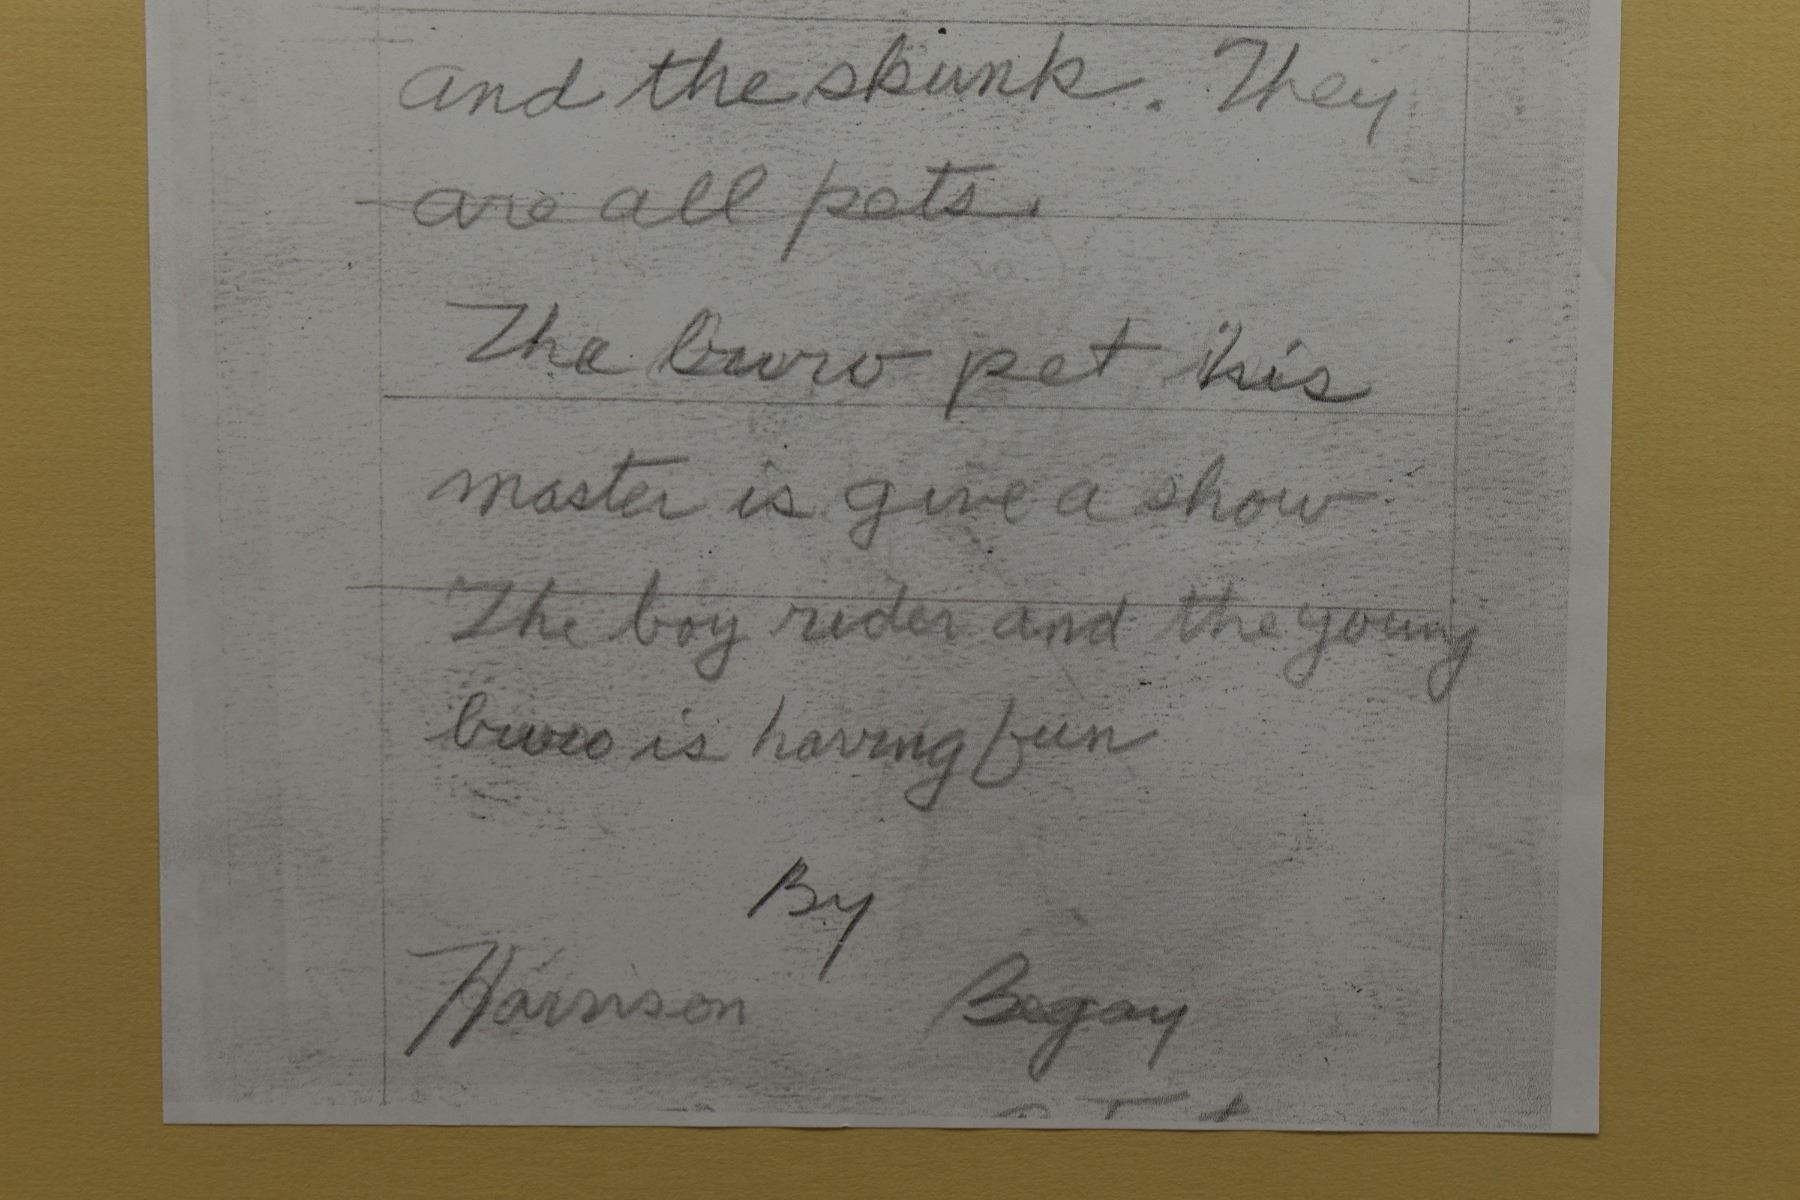 and the skunk. They
are all pets.
The burro pet his
master is give a show
The boy rider and the young
burro is having fun
By
Harrison Begay